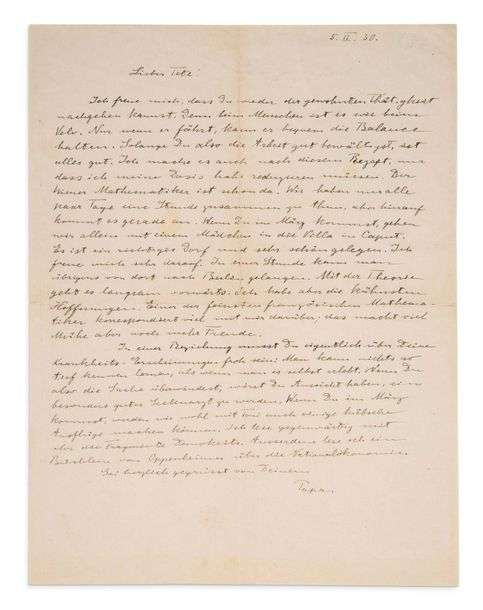 5. II. 30.
Lieber Tete!
Ich freue mich, dass Du wieder der gewohnten Thätigkeit
nachgehen kannst. Denn beim Menschen ist es wie beim
Velo. Nur wenn er fährt, kann er bequem die Balance
halten. Solange Du also die Arbeit gut bewältigst, ist
alles gut. Ich mache es auch nach diesem Rezept, nur
dass ich meine Dosis habe reduzieren müssen. Der
Wiener Mathematiker ist schon da. Wir haben nur alle
paar Tage eine Stunde zusammen zu thun, aber hierauf
kommt es gerade an. Wenn Du im März kommst, gehen
wir allein mit einem Mädchen in die Villa in Caput.
Es ist ein richtiges Dorf und sehr schön gelegen. Ich
freue mich sehr darauf. In einer Stunde kann man
übrigens von dort nach Berlin gelangen. Mit der Theorie
geht es langsam vorwärts. Ich habe aber die kühnsten
Hoffnungen. Einer der feinsten französischen Mathema-
tiker korrespondiert viel mit mir darüber, das macht viel
Mühe aber noch mehr Freude.
In einer Beziehung musst Du eigentlich über Deine
Krankheits-Erscheinungen froh sein. Man kann nichts so
tief kennen lernen, als wenn man es selbst erlebt. Wenn Du
also die Sache überwindest, wirst Du Aussicht haben, ein
besonders guter Seelenarzt zu werden. Wenn Du im März
kommst, werden wir wohl mit Tony auch einige hübsche
Ausflüge machen können. Ich lese gegenwärtig mit
ihr die Fragmente Demokrits. Ausserdem lese ich ein
Büchlein von Oppenheimer über die Nationalökonomie.
Sei herzlich gegrüsst von Deinem
Papa.